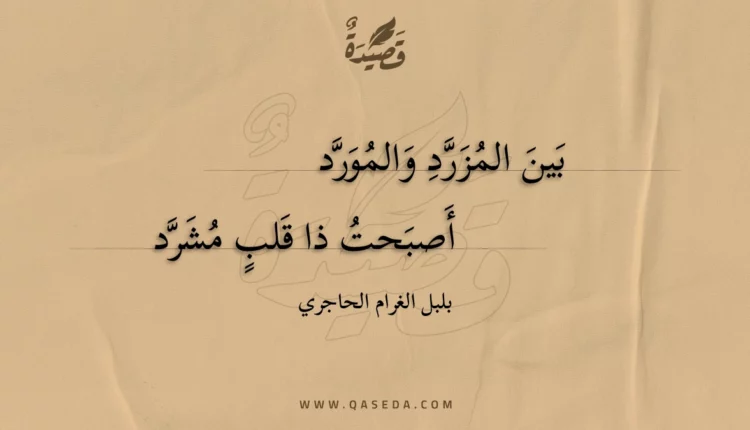 قَصِيدَةٌ
بَينَ المُزَرَّدِ وَالمُوَرَّد
أَصبَحتُ ذا قَلبٍ مُشَرَّد
بلبل الغرام الحاجري
WWW.QASEDA.COM